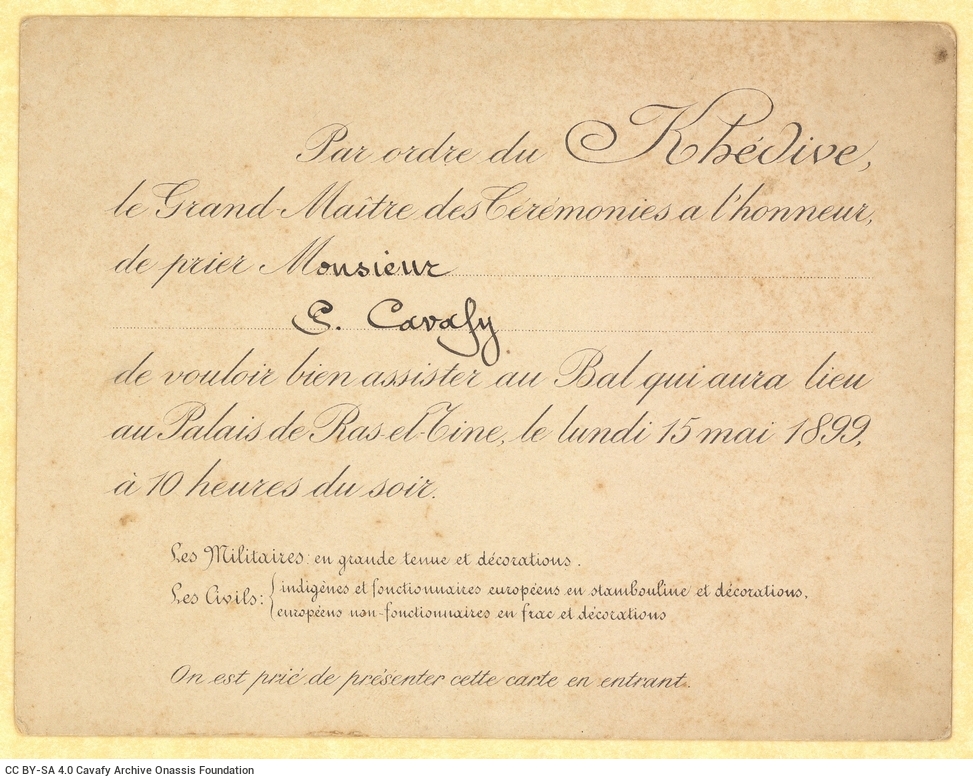 Par ordre du Khédive,
le Grand-Maître des Cérémonies a l'honneur,
de prier Monsieur
C. Cavafy
de vouloir bien assister au Bal qui aura lieu
au Palais de Ras-el-Tine, le lundi 15 mai 1899,
à 10 heures du soir.
Les Militaires: en grande tenue et décorations.
Les Civils: { indigènes et fonctionnaires européens en stambouline et décorations,
européens non-fonctionnaires en frac et décorations
On est prié de présenter cette carte en entrant.
CC BY-SA 4.0 Cavafy Archive Onassis Foundation